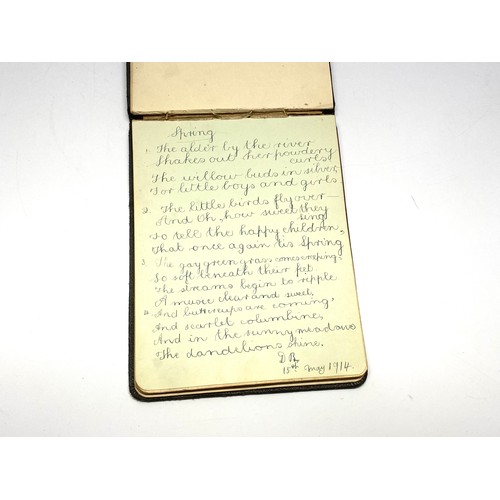 Spring
1. The alder by the river
Shakes out her powdery
curls
The willow buds in silver,
For little boys and girls.
2. The little birds fly over —
And Oh, how sweet they
sing
To tell the happy children,
That once again tis Spring
3. The gay green grass comes creeping-
So soft beneath their feet.
The streams begin to ripple
A music clear and sweet,
4. And buttercups are coming,
And scarlet columbine,
And in the sunny meadows
The dandelions shine.
15th May 1914.